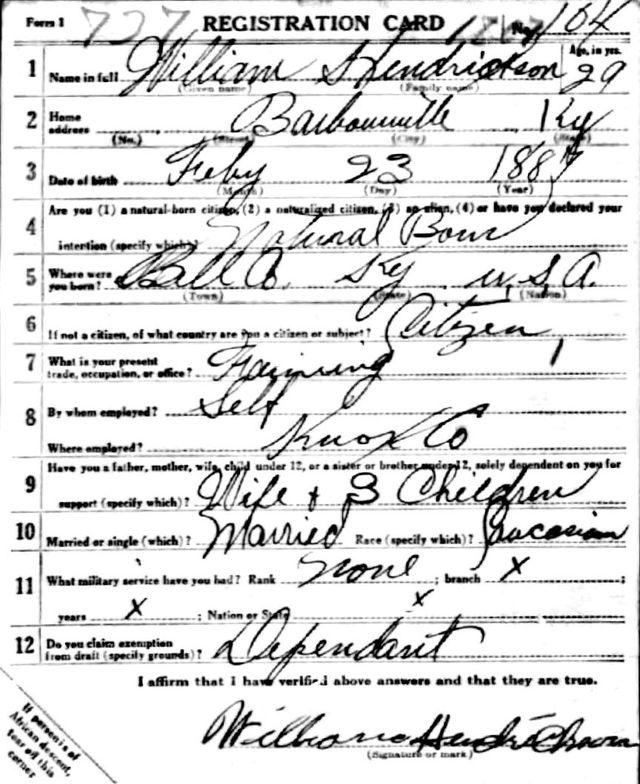 Form 1 727 REGISTRATION CARD No. 104
Age, in yrs.
1 Name in full William Hendrickson 29
(Given name) (Family name)
2 Home address Barbourville Ky
(No.) (Street) (City) (State)
3 Date of birth Feby 23 1887
(Month) (Day) (Year)
4 Are you (1) a natural-born citizen, (2) a naturalized citizen, (3) an alien, (4) or have you declared your
intention (specify which)? Natural Born
5 Where were you born? Bell Co. Ky U.S.A.
(Town) (State) (Nation)
6 If not a citizen, of what country are you a citizen or subject? Citizen
7 What is your present trade, occupation, or office? Farming
8 By whom employed? Self
Where employed? Knox Co
9 Have you a father, mother, wife, child under 12, or a sister or brother under 12, solely dependent on you for
support (specify which)? Wife + 3 Children
10 Married or single (which)? Married Race (specify which)? Caucasian
11 What military service have you had? Rank None ; branch X ;
years X ; Nation or State X
12 Do you claim exemption from draft (specify grounds)? Dependant
I affirm that I have verified above answers and that they are true.
William Hendrickson
(Signature or mark)
If person is of
African descent,
tear off this
corner